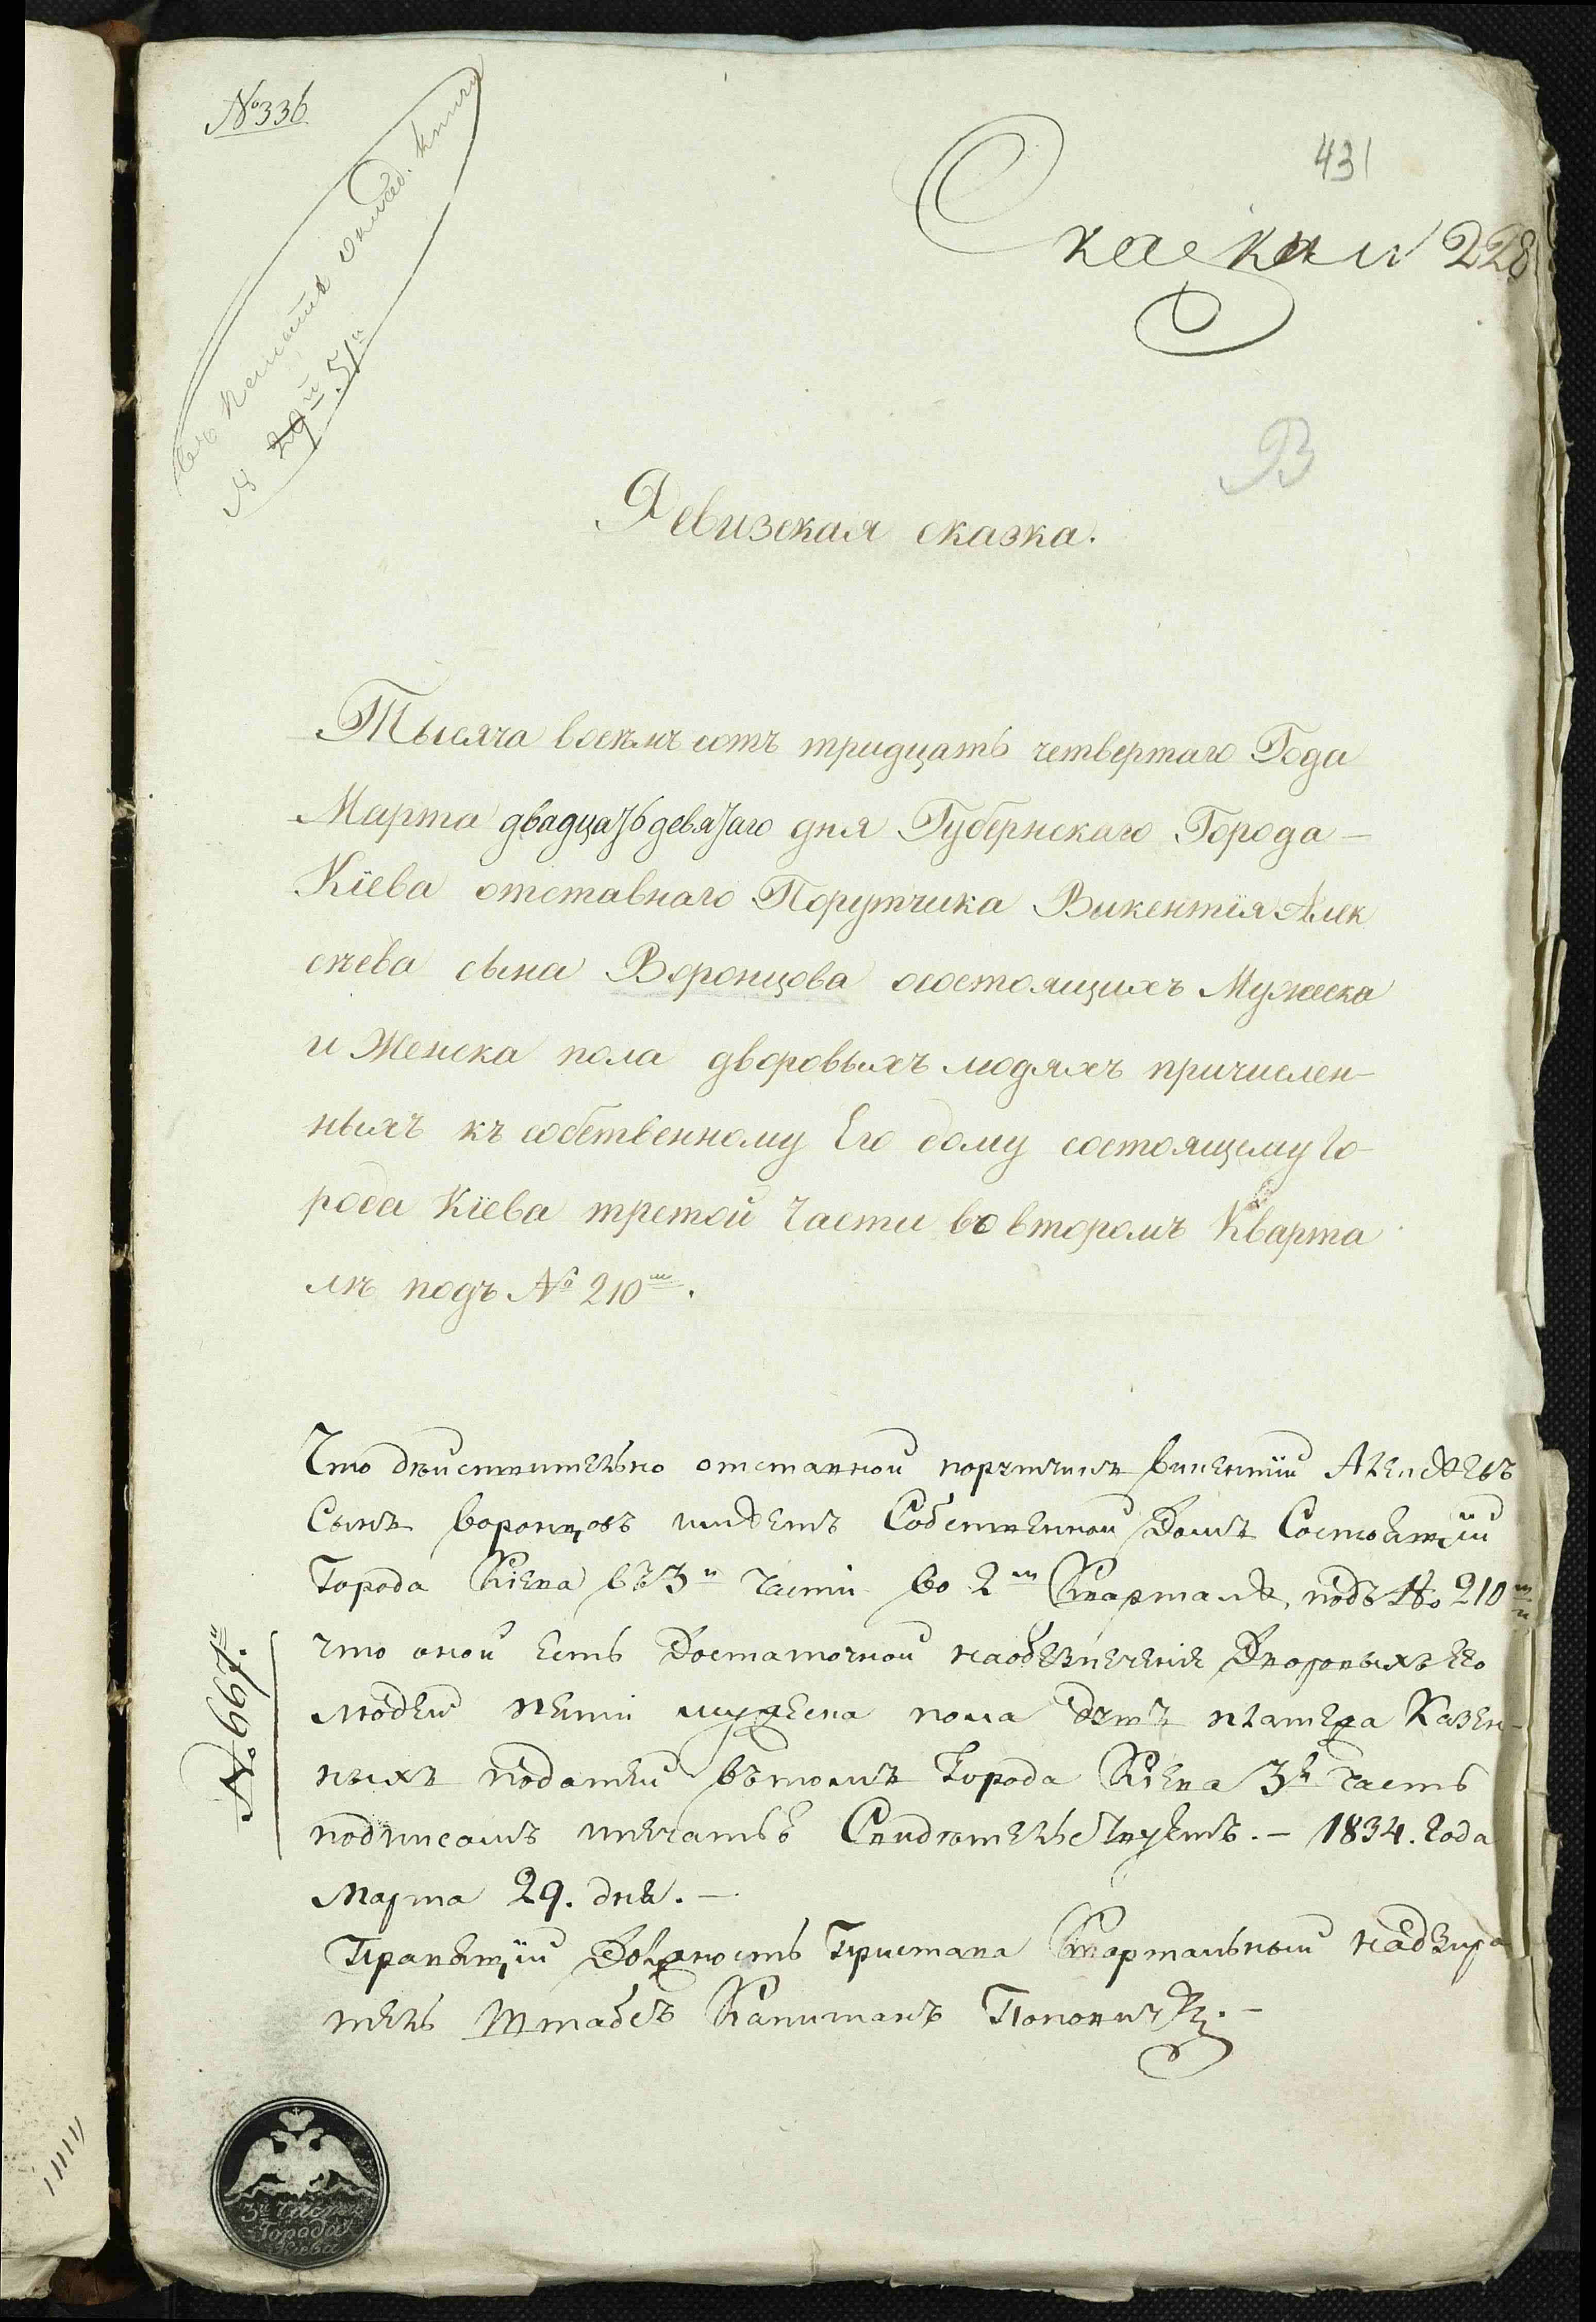 № 336
431
228
№ 29й 51й
В
Ревизская сказка.
Тысяча восемь сотъ тридцать четвертаго Года
Марта двадцать девятаго дня Губернскаго Города
Кіева отставнаго Порутчика Викентія Алек
сѣева сына Воронцова осостоящихъ Мужеска
и Женска пола дворовыхъ людяхъ причислен-
ныхъ къ собственному Его дому состоящему Го-
рода Кіева третой Части во второмъ Кварта
лѣ подъ № 210м.
Что дѣиствительно отставной порутчикъ Викентіи Алексѣевъ
Сынъ Воронцовъ имѣетъ Собственной Домъ Состоящіи
Города Кіева въ 3й Части во 2м Кварталѣ, подъ No 210м
что оной есть Достаточной наобезпеченіе Дворовыхъ Его
людей пяти мужеска пола душъ платежа Казен-
ныхъ податей вътомъ Города Кіева 3я Часть
подписомъ ипечатью Свидѣтельствуетъ. - 1834. Года
Марта 29. дня. -
Правящіи Должность Пристава Квартальный Надзира
тель Штабсъ Капитанъ Поповичъ. -
№ 667й.
3й Части
Города
Кіева